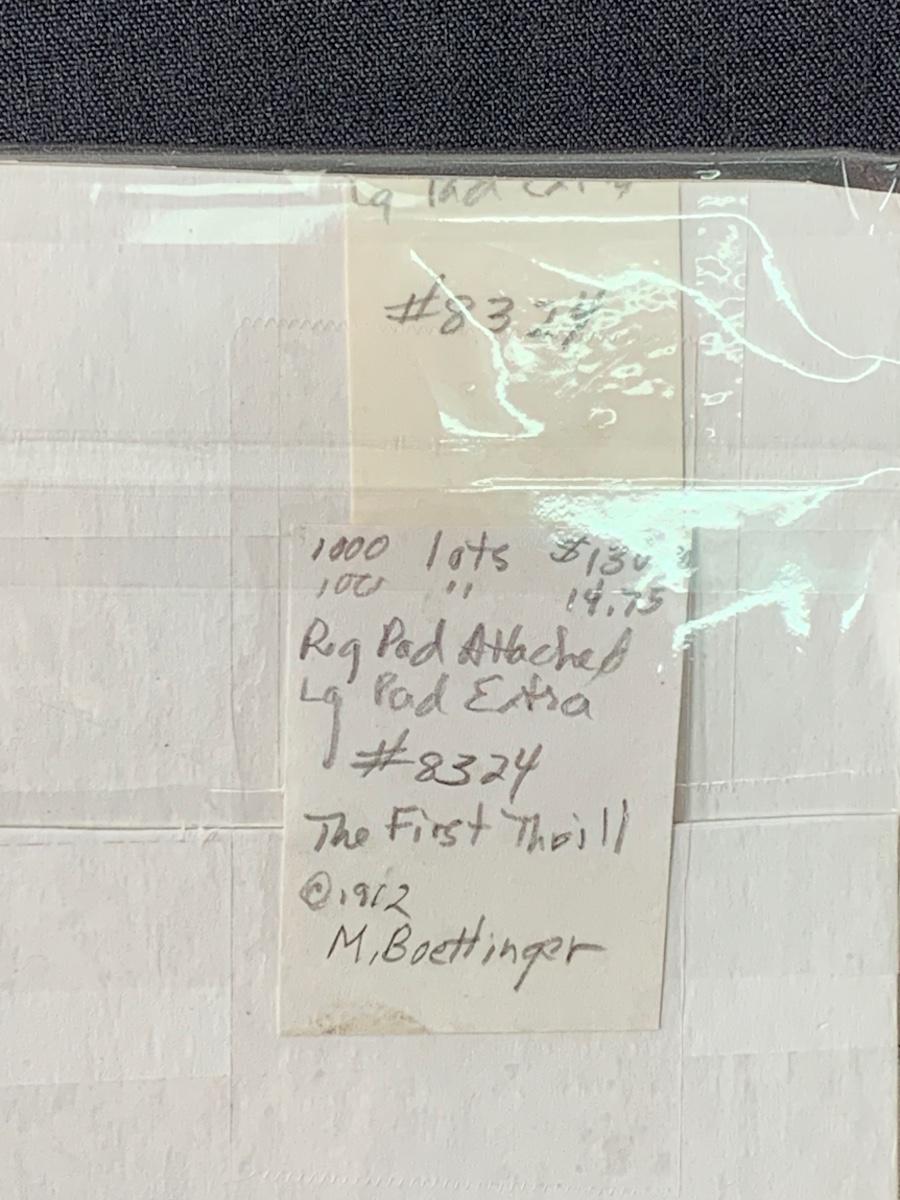 #8324
1000 lots
100 " 14.75
Reg Pad Attached
Lg Pad Extra
#8324
The First Thrill
©1912
M. Boettinger